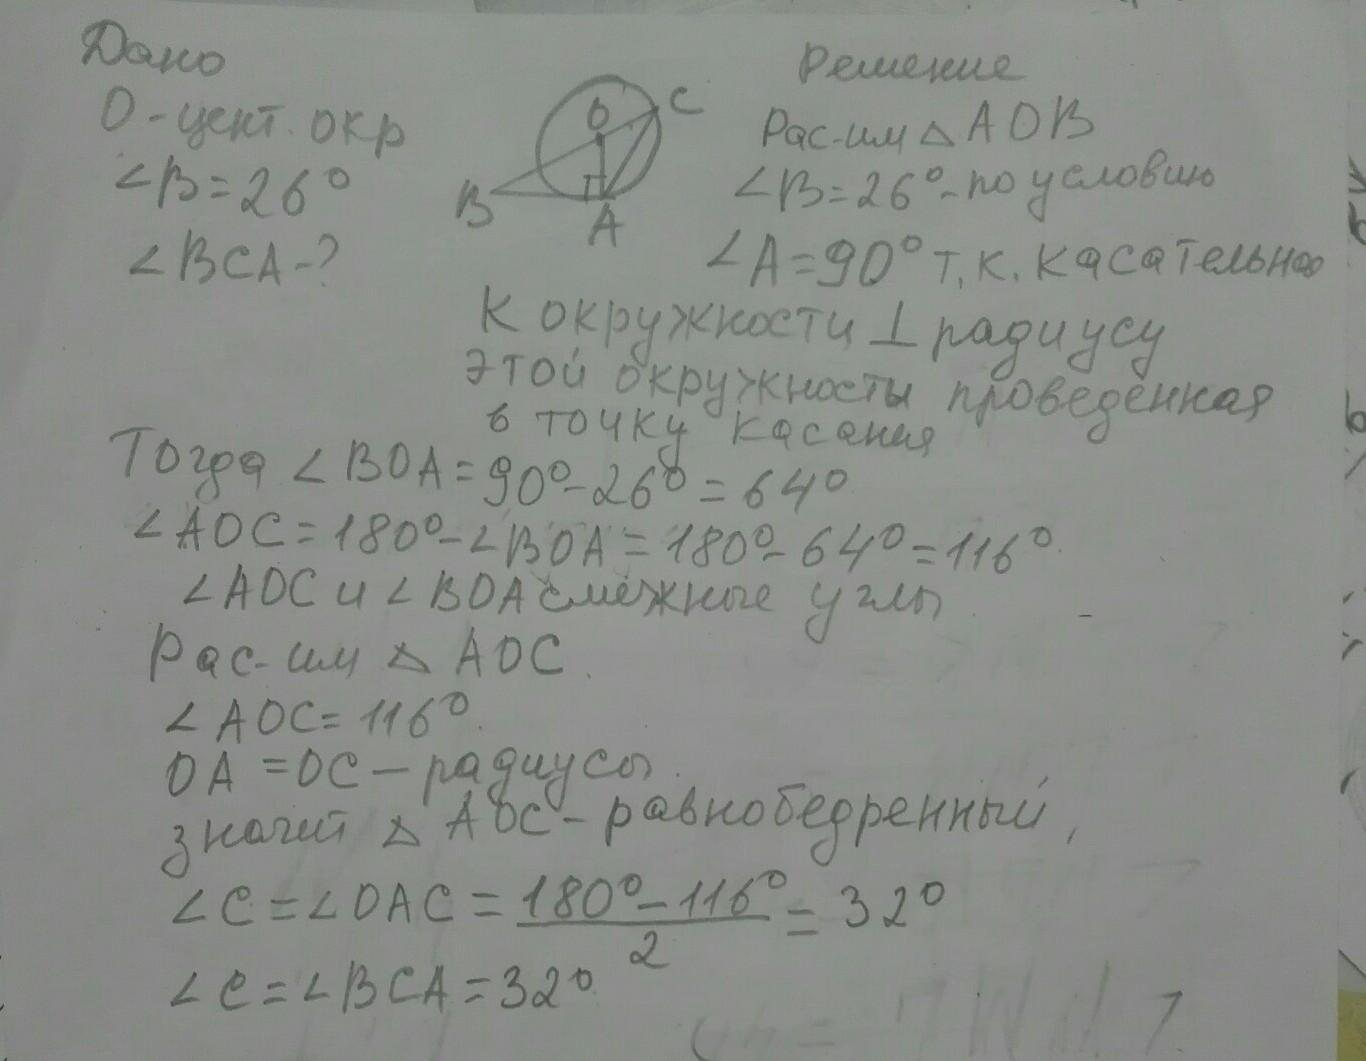 Дано
О-цент. окр
∠B=26°
∠BCA-?
O
C
B
A
Решение
Рас-им △ AOB
∠B=26°-по условию
∠A=90° т.к. касательная
к окружности ⊥ радиусу
этой окружносты проведенная
в точку касания
Тогда ∠BOA=90°-26°=64°
∠AOC=180°-∠BOA=180°-64°=116°
∠AOC и ∠BOA смежные углы
Рас-им △ AOC.
∠AOC=116°.
OA=OC-радиусы.
значит △ AOC-равнобедренный,
∠C=∠OAC=180°-116°/2=32°
∠C=∠BCA=32°